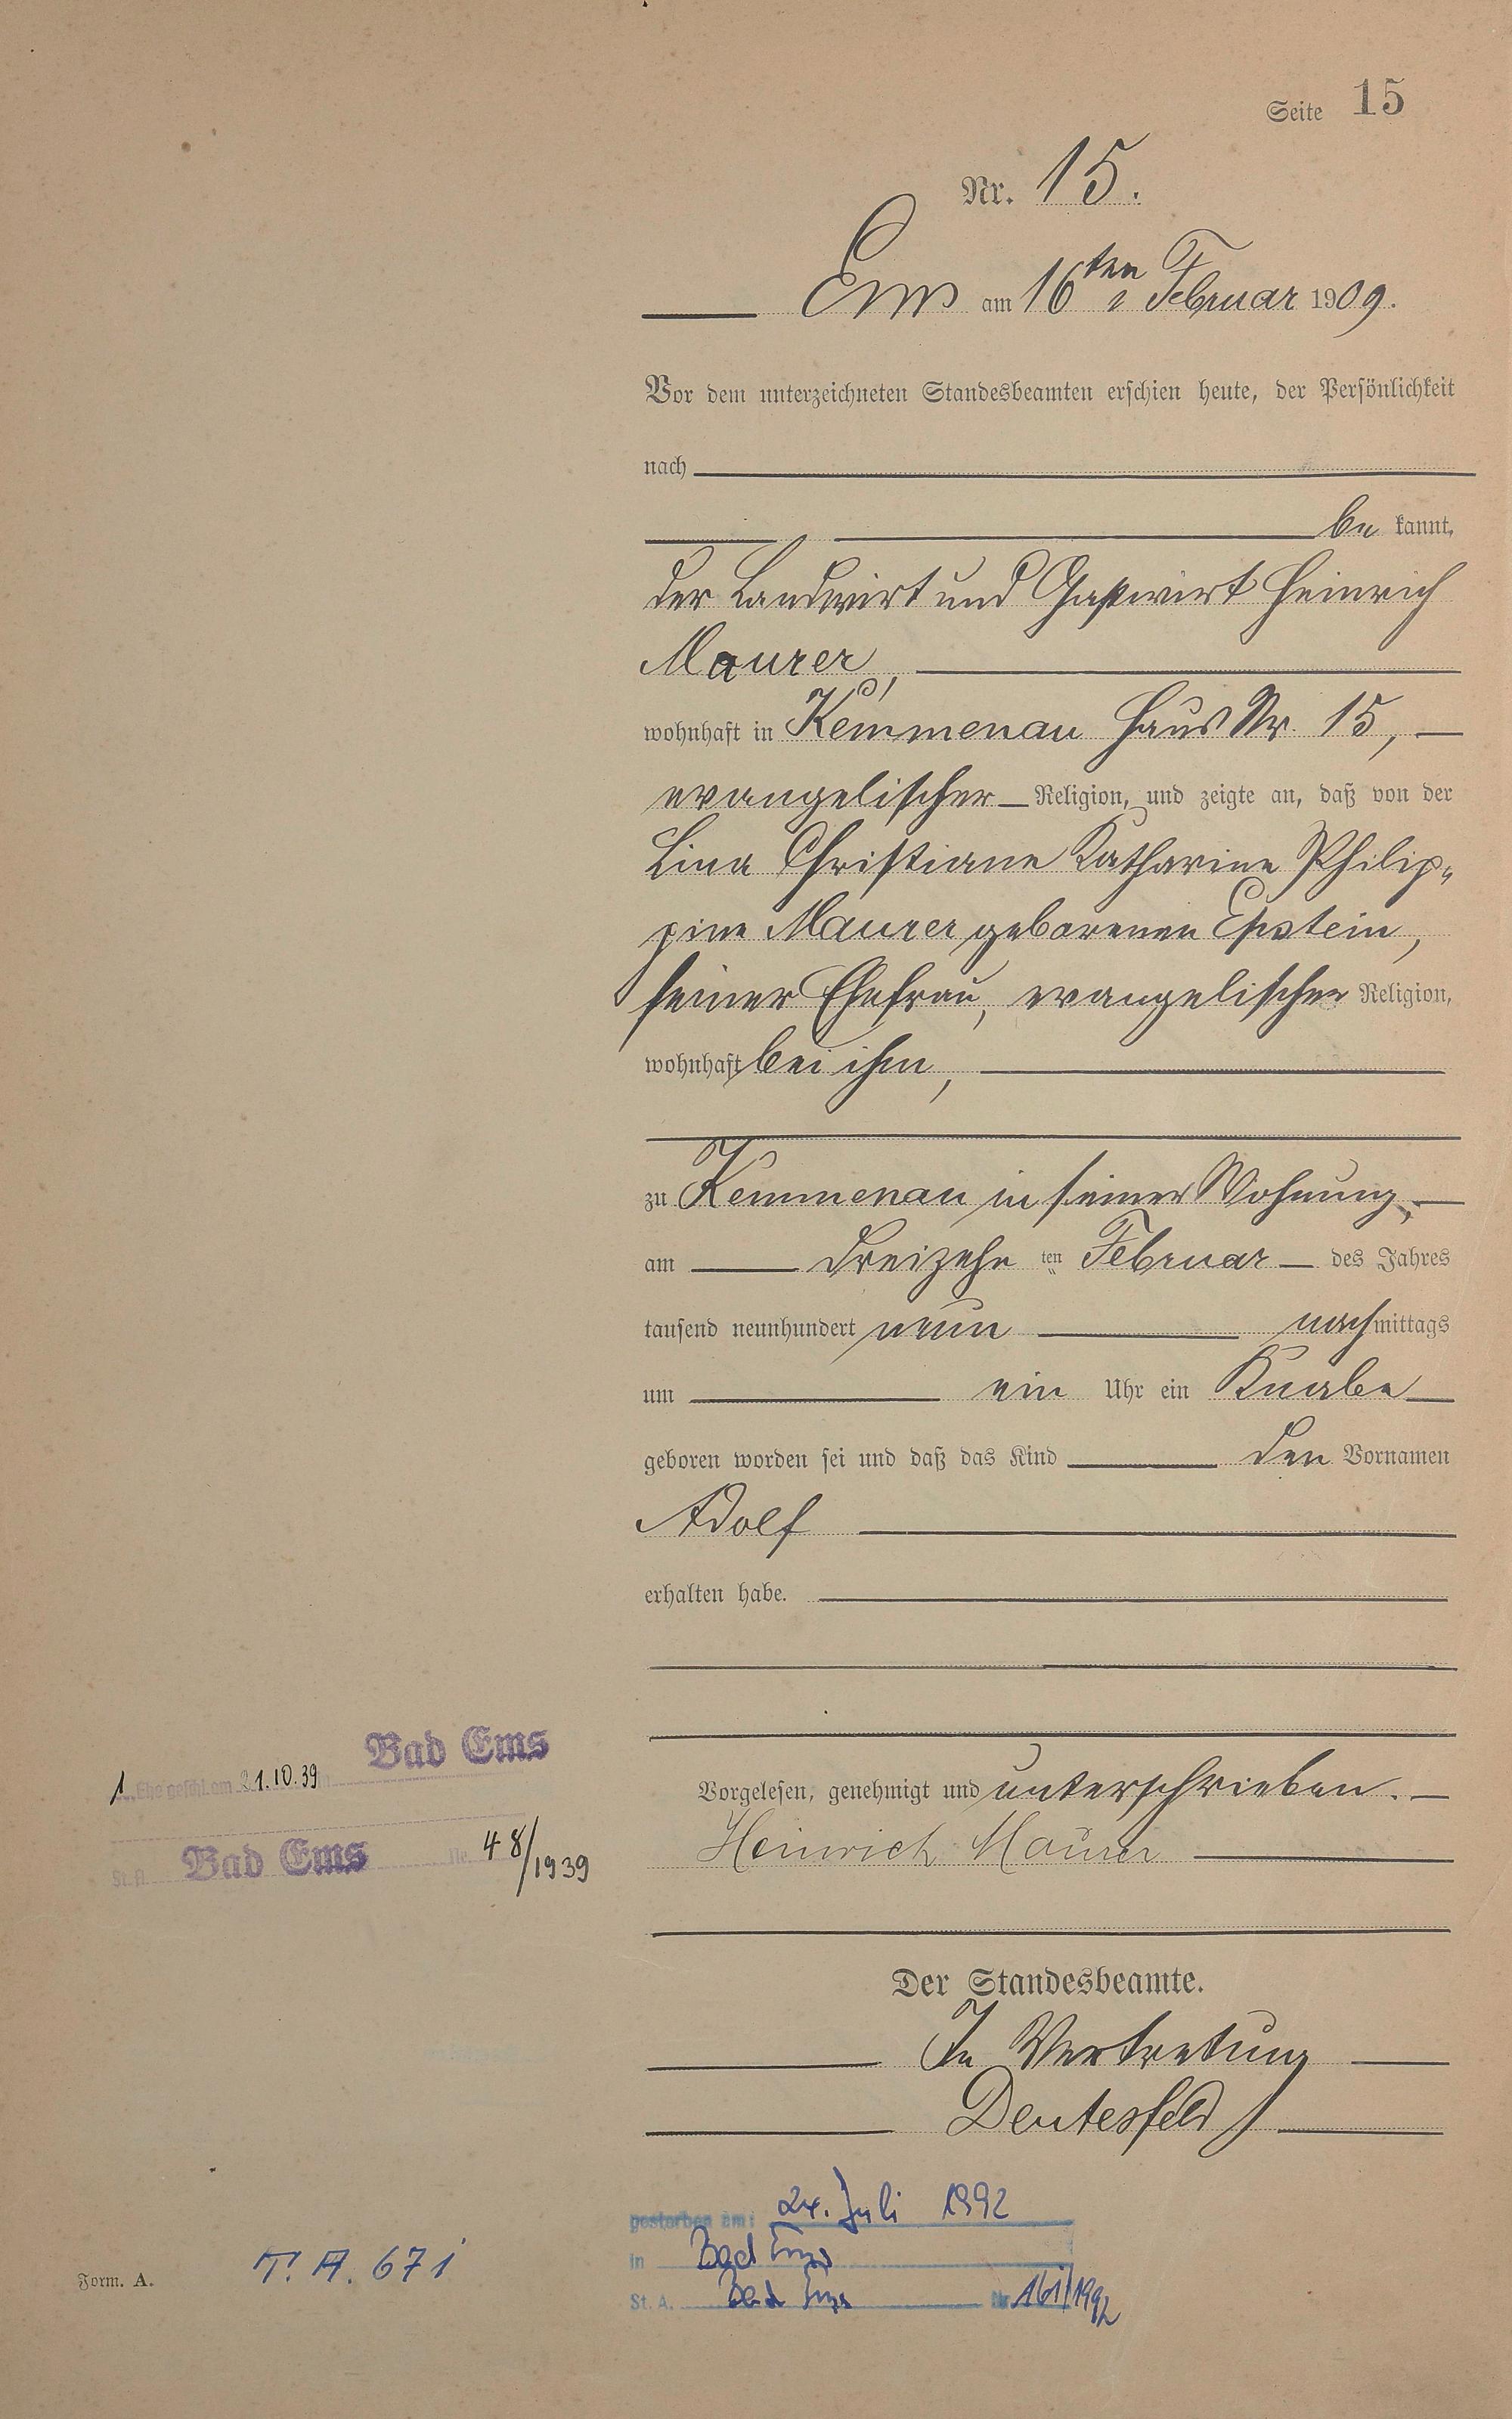 Seite 15
Nr. 15.
Ems am 16ten Februar 1909.
Vor dem unterzeichneten Standesbeamten erschien heute, der Persönlichkeit
nach
be kannt,
der Landwirt und Gastwirt Heinrich
Maurer,
wohnhaft in Kemmenau Haus Nr. 15,
evangelischer Religion, und zeigte an, daß von der
Lina Christiane Katharine Philip-
pine Maurer geborenen Epstein,
seiner Ehefrau, evangelischer Religion,
wohnhaft bei ihm,
zu Kemmenau in seiner Wohnung,
am dreizehn ten Februar des Jahres
tausend neunhundert neun nachmittags
um ein Uhr ein Knabe
geboren worden sei und daß das Kind den Vornamen
Adolf
erhalten habe.
Vorgelesen, genehmigt und unterschrieben.
Heinrich Maurer
Der Standesbeamte.
In Vertretung
Deutesfeld
1. Ehe geschl. am 21.10.39 in Bad Ems
St. A. Bad Ems Nr. 48/1939
gestorben am: 24. Juli 1992
in Bad Ems
St. A. Bad Ems Nr. 161/1992
T. A. 671
Form. A.